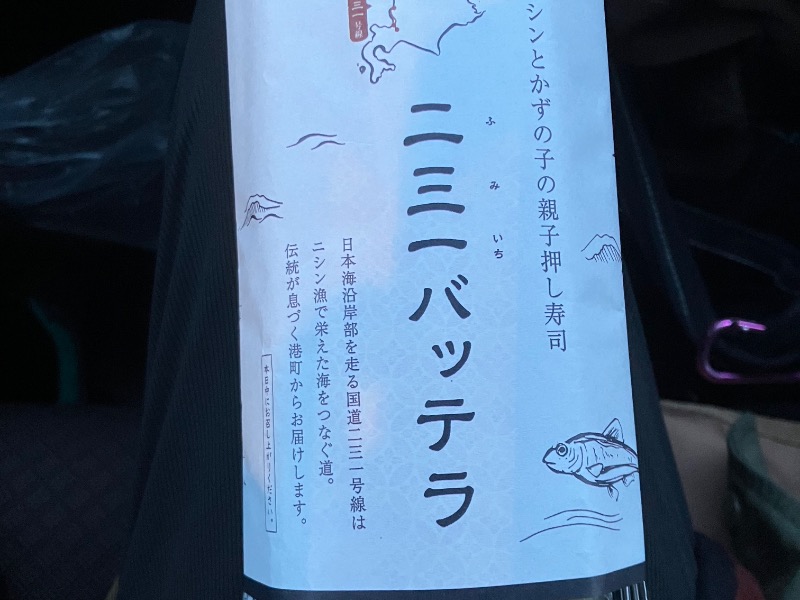 シンとかずの子の親子押し寿司
二三一バッテラ
ふみいち
日本海沿岸部を走る国道二三一号線は
ニシン漁で栄えた海をつなぐ道。
伝統が息づく港町からお届けします。
本日中にお召し上がりください。
三一号線